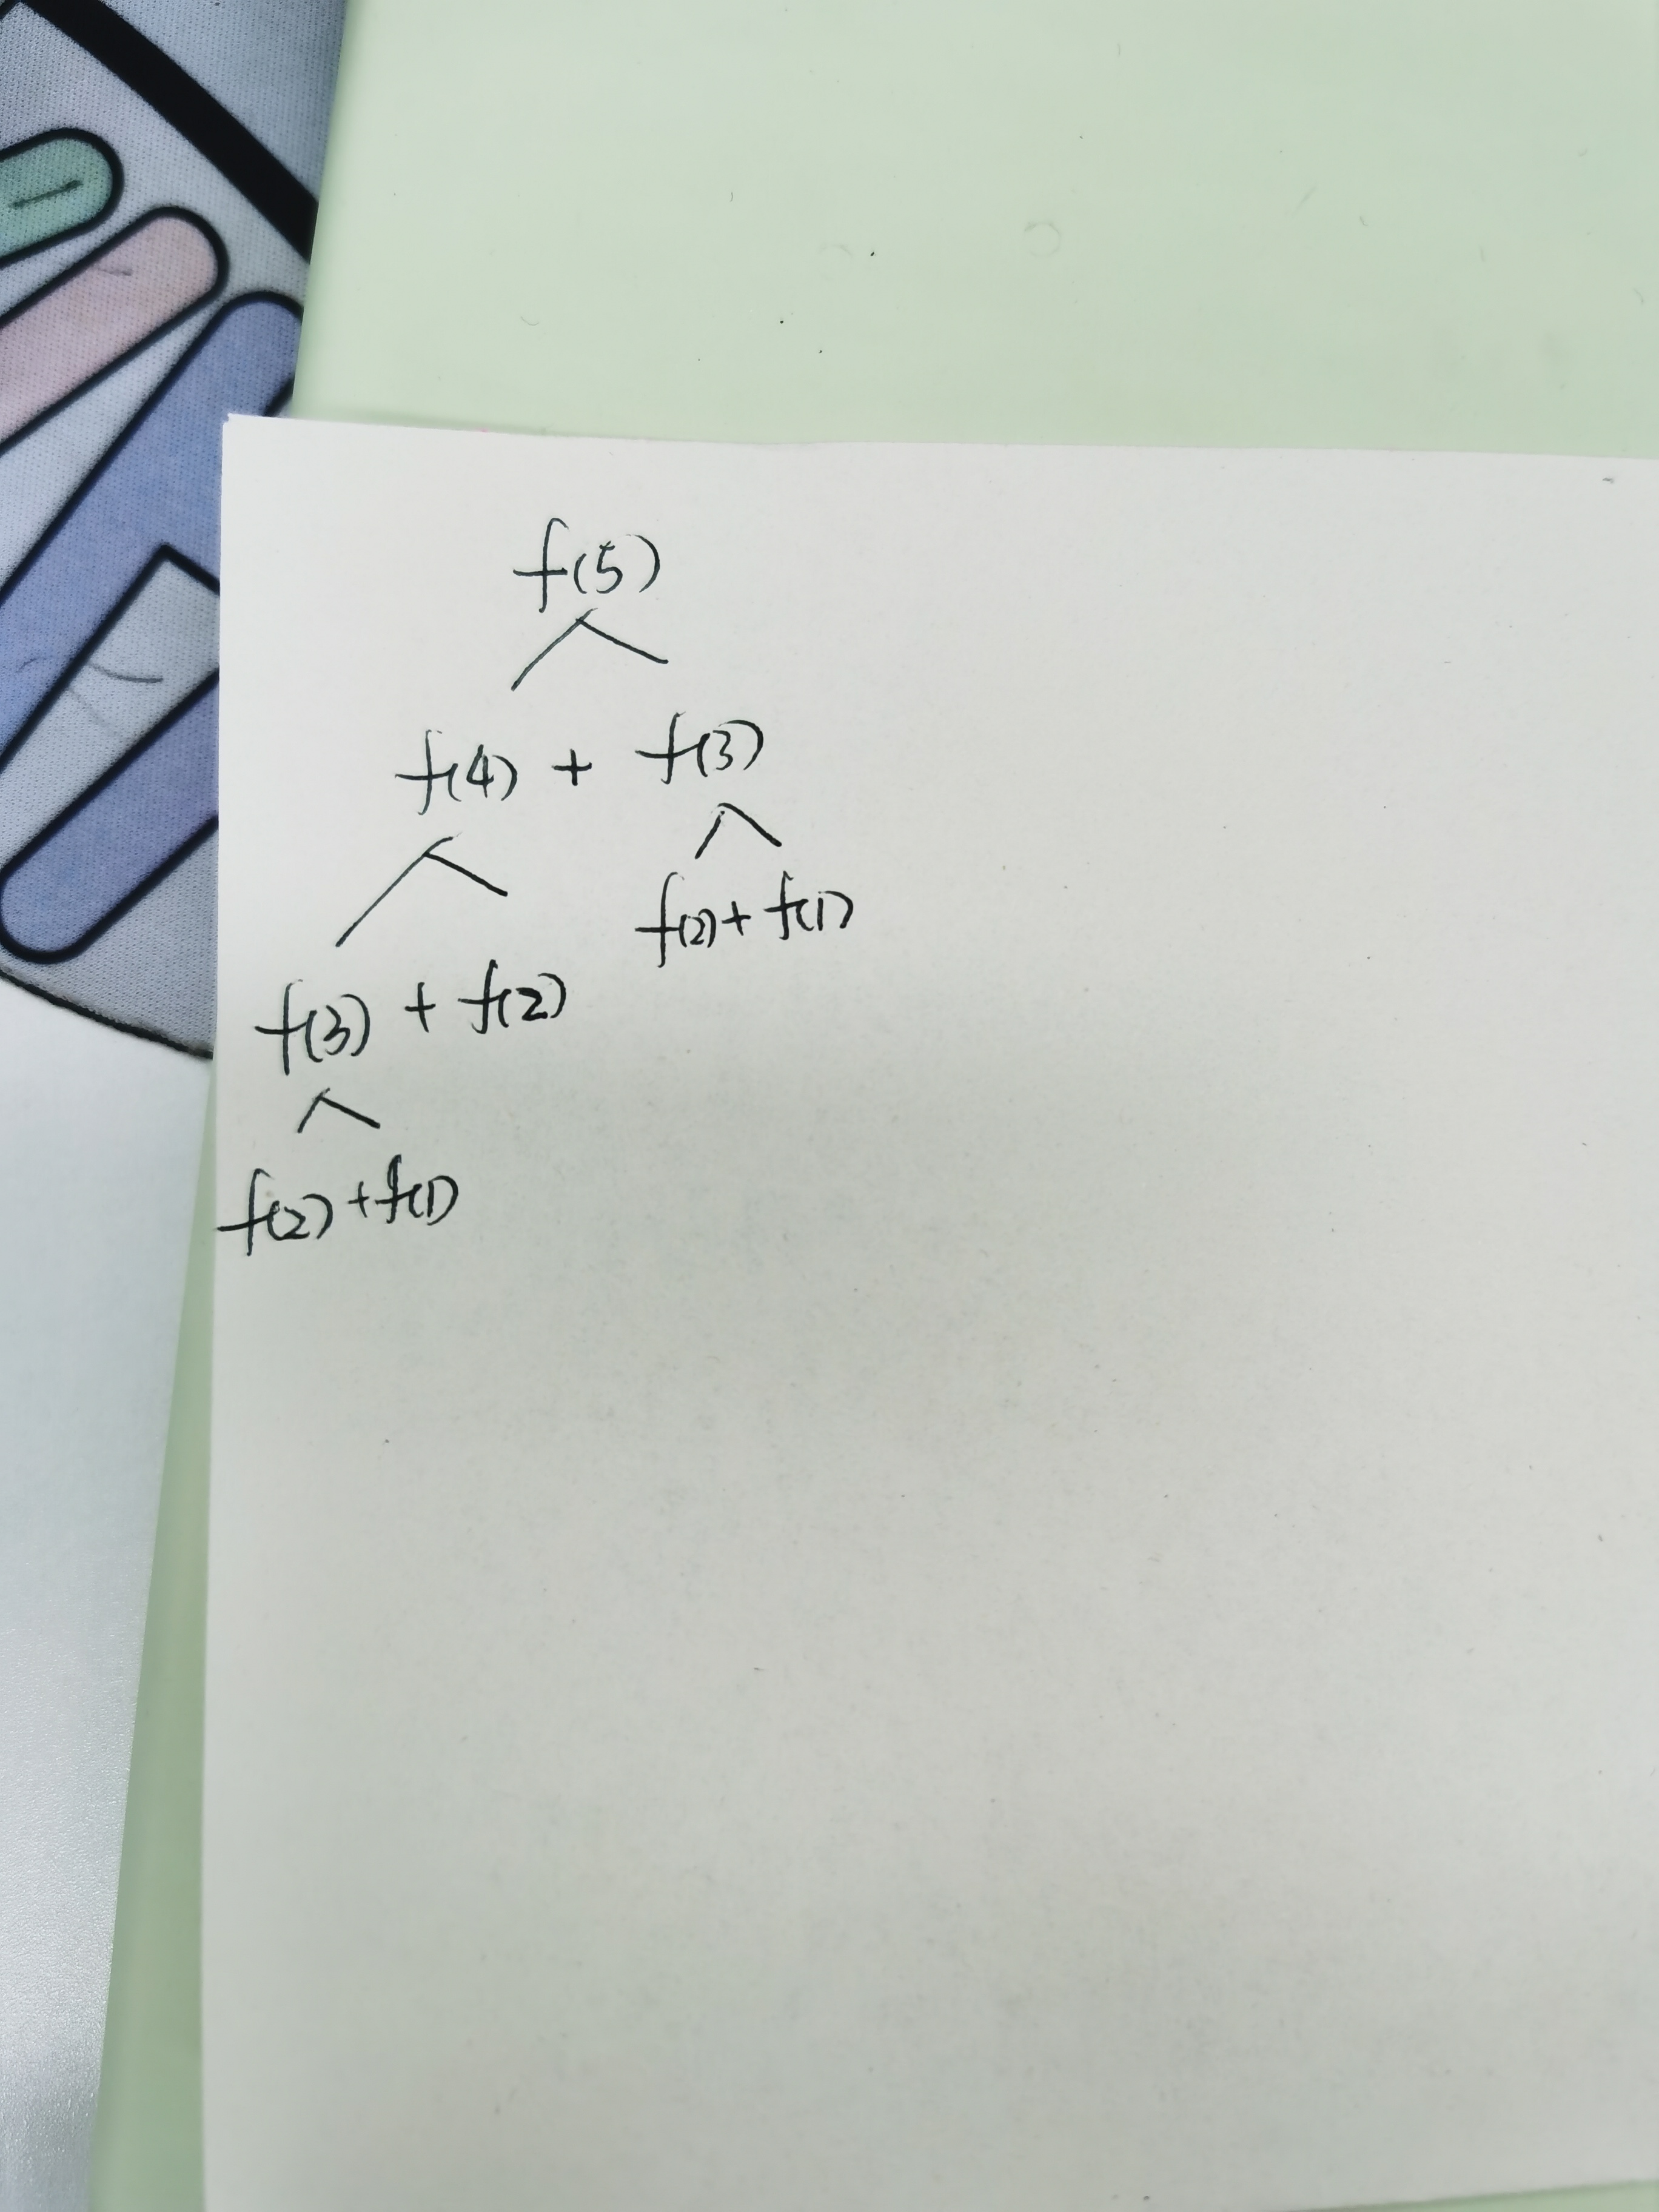 f(5)
f(4) + f(3)
f(2) + f(1)
f(3) + f(2)
f(2) + f(1)